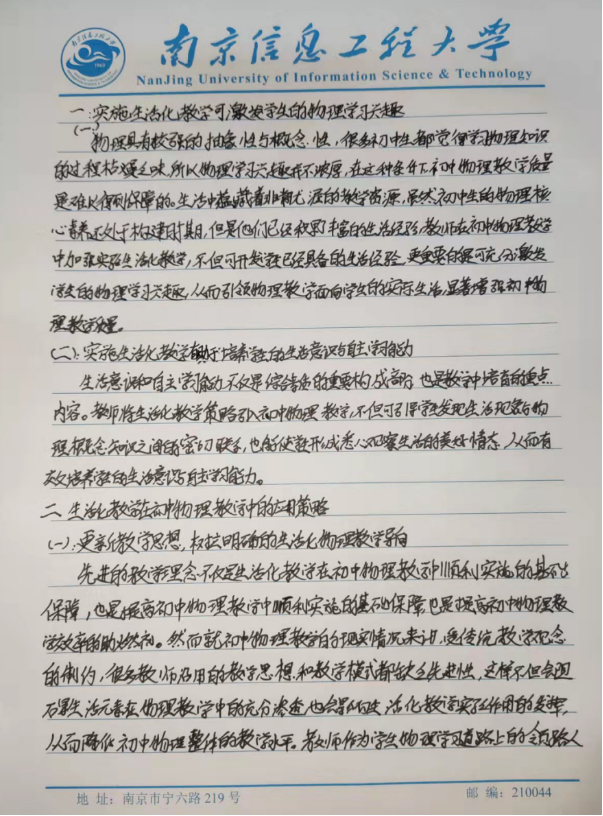 南京信息工程大学
NanJing University of Information Science & Technology
一.实施生活化教学可激发学生的物理学习兴趣
(一)
物理具有较强的抽象性与概念性,很多初中生都觉得学习物理知识
的过程枯燥乏味,所以物理学习兴趣并不浓厚,在这种条件下,初中物理教学质量
是难以得到保障的。生活中蕴藏着非常广泛的教学资源,虽然初中生的物理核
心素养还处于构建时期,但是他们已经积累了丰富的生活经验,教师在初中物理教学
中加强实施生活化教学,不但可开发学生已经具备的生活经验,更重要的是可充分激发
学生的物理学习兴趣,从而引领物理教学面向学生的实际生活,显著增强初中物
理教学质量。
(二).实施生活化教学有助于培养学生的生活意识与自主学习能力
生活意识和自主学习能力不仅是综合素质的重要构成部分,也是教学中培育的重点
内容。教师将生活化教学策略引入初中物理教学,不但可引导学生发现生活现象与物
理概念知识之间的密切联系,也能使学生形成悉心观察生活的美好情态,从而有
效培养学生的生活意识与自主学习能力。
二.生活化教学在初中物理教学中的应用策略
(一).更新教学思想,构建明确的生活化物理教学导向
先进的教学理念不仅是生活化教学在初中物理教学中顺利实施的基础
保障,也是提高初中物理教学中顺利实施的基础保障也是提高初中物理教
学效率的助燃剂。然而就初中物理教学的现实情况来讲,受传统教学理念
的制约,很多教师沿用的教学思想和教学模式都缺乏先进性,这样不但会阻
碍生活元素在物理教学中的充分渗透也会影响生活化教学实际作用的发挥,
从而降低初中物理整体的教学水平。教师作为学生物理学习道路上的领路人
地 址:南京市宁六路219号
邮 编:210044